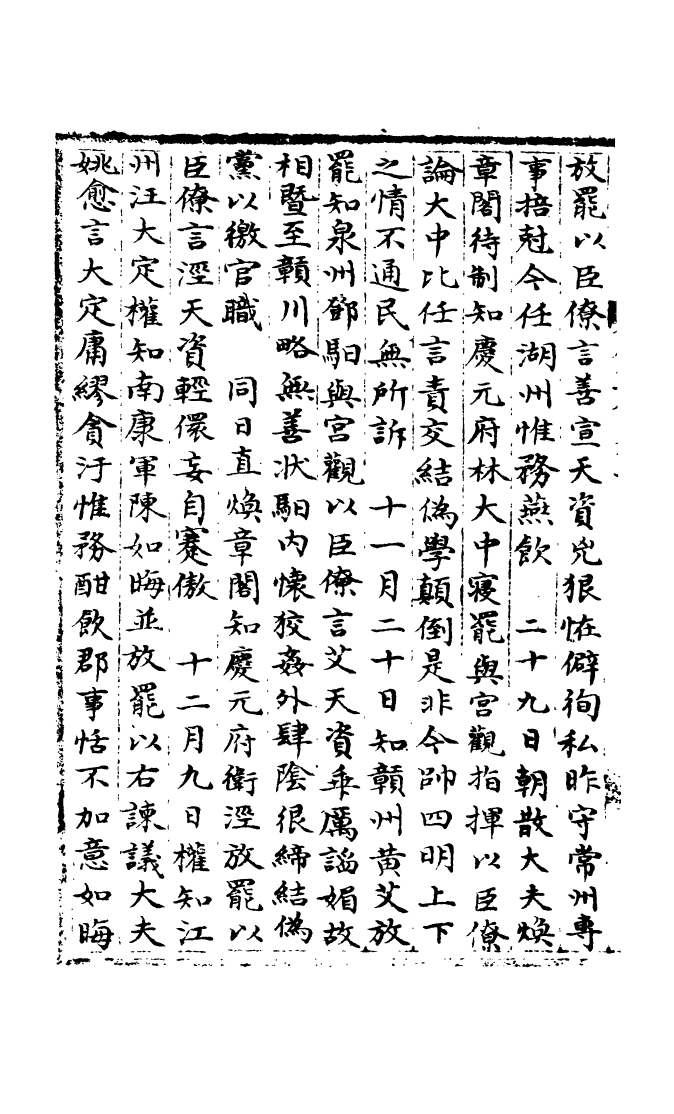 放罷以臣僚言善宣天資兇狠恠僻徇私昨守常州專
事掊尅今任湖州惟務燕飲　二十九日朝散大夫煥
章閣待制知慶元府林大中寢罷與宮觀指揮以臣僚
論大中比任言責交結偽學顛倒是非今帥四明上下
之情不通民無所訴　十一月二十日知贛州黄艾放
罷知泉州鄧馹與宮觀以臣僚言艾天資乖厲謟媚故
相暨至贛川略無善狀馹内懷狡姦外肆陰很締結偽
黨以繳官職　同日直煥章閣知慶元府衛涇放罷以
臣僚言涇天資輕儇妄自蹇傲　十二月九日權知江
州汪大定權知南康軍陳如晦並放罷以右諫議大夫
姚愈言大定庸繆貪汙惟務酣飲郡事恬不加意如晦